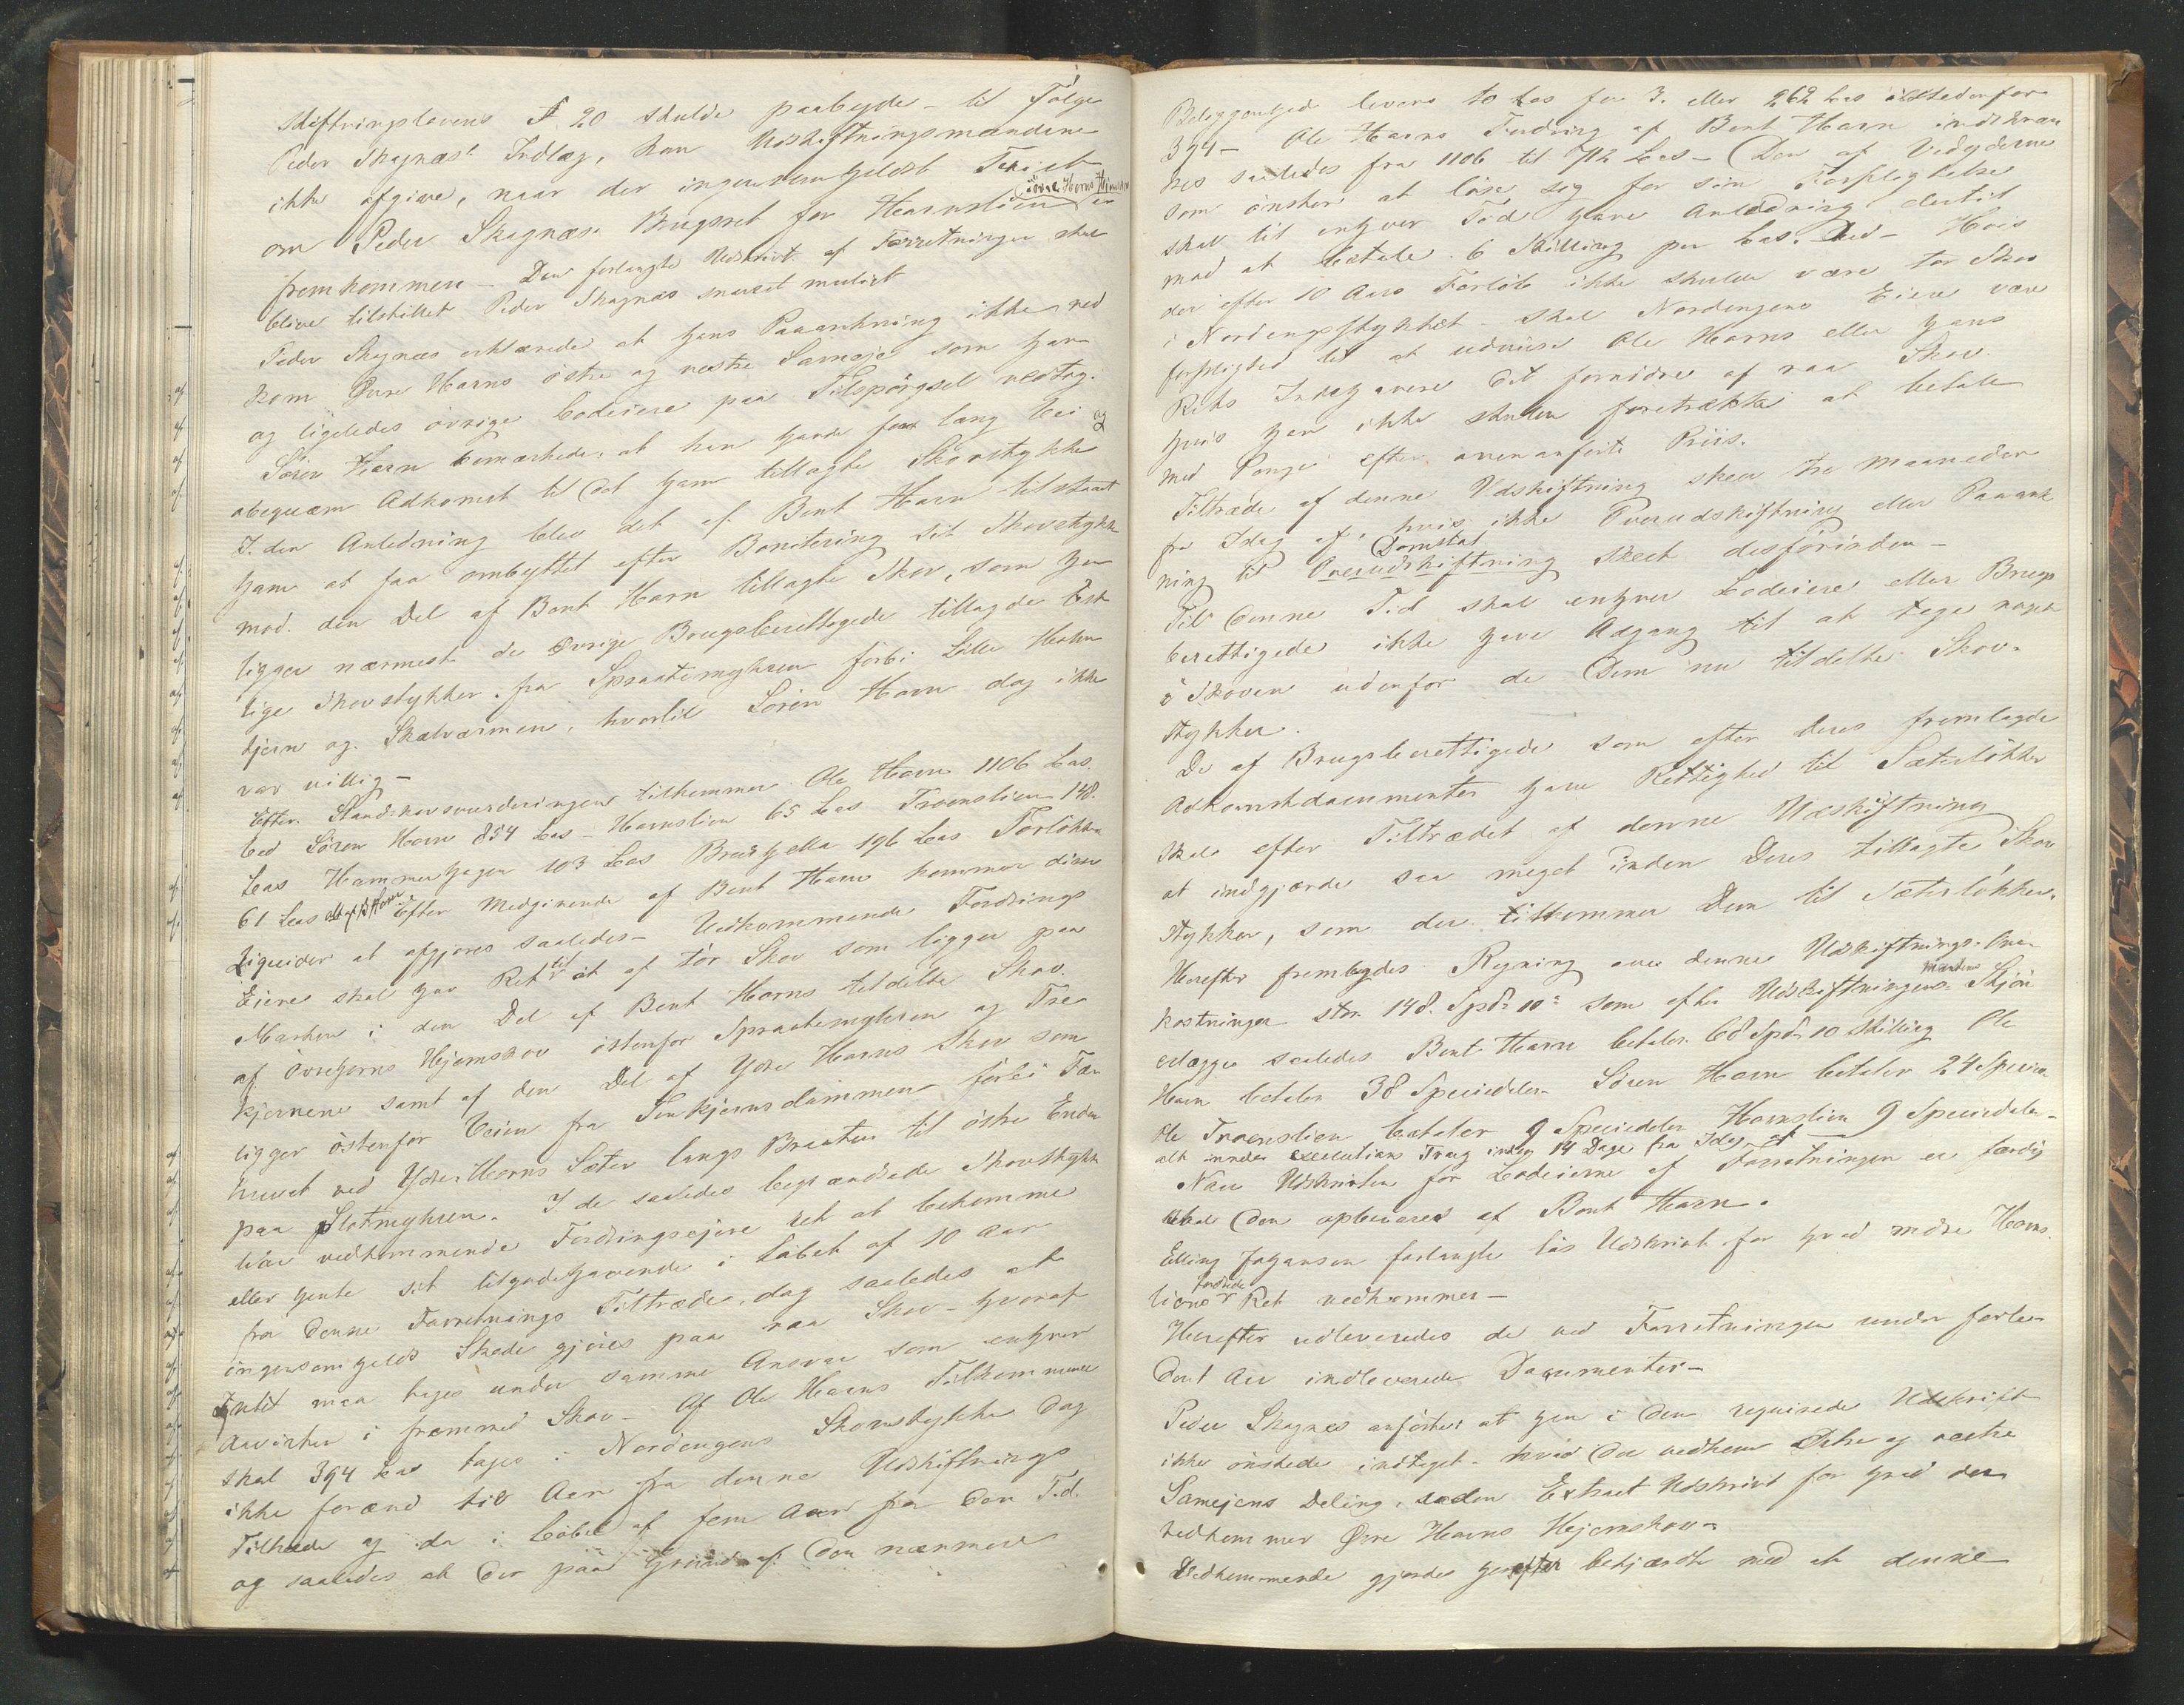 skiftningslovens § 20 skulde paabyde – til Følge
Peder Skagnæs' Indlæg, kan Udskiftningsmændene
ikke afgive, naar der ingensomhelst Tvist
om Peder Skagnæs Brugsret for Harnslien i øvre Horns Hjemskov er
fremkommen – Den forlangte Udskrivt af Forretningen skal
blive tilstillet Peder Skagnæs snarest muligt
Peder Skagnæs erklærede at hans Paaankning ikke ved
kom Øvre Harns østre og vestre Sameje som han
og ligeledes øvrige Lodeiere paa Tilspørgsel vedtog.
Søren Harn bemærkede, at han havde for lang Vei og
ubequæm Adkomst til det ham tillagte Skovstykke
I den Anledning blev det af Bent Harn tilstaaet
ham at faa ombyttet efter Bonitering sit Skovstykke
mod den Del af Bent Harn tillagte Skov, som han
ligger nærmest de øvrige Brugsberettigede tillagde Øst-
lige Skovstykker fra Spraatemyhren forbi Lille Hahn
kjern og Skalværmen, hvortil Søren Harn dog ikke
var villig –
Efter Standskovsvurderingen tilkommer Ole Harn 1106 Las
Ved Søren Harn 854 Las – Harnslien 65 Las Troenslien 148
Las Hammerhagen 103 Las Breihella 196 Las Torløkken
61 Las alt af B. Harn Efter Medgivende af Bent Harn kommer disse
Liqvider at afgjøres saaledes – Vedkommende Fordrings
Eiere skal hav Ret til at af tør Skov som ligger paa
Marken i den Del af Bent Harns tildelte Skov
af Øvreharns Hjemskov østenfor Spraatemyhren og Tre
kjernene samt af den Del af Ydre Harns Skov som
ligger østenfor Veien fra Senkjernsdammen forbi Fæ-
huset ved Ydre Harns Sæter langs Braaten til østre Enden
paa Slotmyhren. I de saaledes begrændsede Skovstykker
har vedkommende Fordringsejere ret at bekomme
eller hente sit tilgodehavende i Løbet af 10 Aar
fra denne Forretnings Tiltræde, dog saaledes at
ingensomhelst Skade gjøres paa raa Skov – hvoraf
Intet maa tages under samme Ansvar som enhver
Aavirker i fremmed Skov – Af Ole Harns Tilkommende
skal 394 Las tages i Nordengens Skovstykke dog
ikke forænd tiv Aar fra denne Udskiftnings
Tiltræde og da i Løbet af fem Aar fra den Tid
og saaledes at der paa Grund af den nærmere
Beliggenhed levere 10 Las for 3. eller 262 Las istedenfor
394 – Ole Harns Fordring af Bent Harn indskræn
kes saaledes fra 1106 til 712 Las – (Den af Vedyderne
som ønsker at løse sig for sin Forpligtelse
skal til enhver Tid have Anledning dertil
mod at betale 6 Skilling per Las. Ved – Hvis
der efter 10 Aars Forløb ikke skulde være tør Skov
i Nordengstykket – skal Nordengens Eiere være
forpligted til at udvise Ole Harns eller hans
Rets Indehavere det fornødne af raa Skov
hvis han ikke skulde foretrække at betale
med Penge efter ovenanførte Priis.
Tiltræde af denne Udskiftning skeer tre Maaneder
fra Idag af, hvis ikke Overudskiftning eller Paaank
ning til Overudskiftning Domstol skeet desforinden –
Til denne Tid skal enhver Lodeiere eller Brugs
berettigede ikke have Adgang til at tage noget
i Skoven udenfor de Dem nu tildelte Skov-
stykker.
De af Brugsberettigede som efter deres fremlagde
Adkomstdocumenter have Rettighed til Sæterløkker
skal efter Tiltrædet af denne Udskiftning
at indgjærde saa meget inden Deres tillagte Skov
stykker, som der tilkommer Dem til Sæterløkker.
Herefter frembydes Regning over denne Udskiftnings Om-
kostninger stor 148 Spd: 10 s som efter Udskiftningens mændenes Skjøn
erlægges saaledes Bent Harn betaler 68 Spd: 10 Skilling Ole
Harn betaler 38 Speciedaler – Søren Harn betaler 24 Specied
Ole Troenslien betaler 9 Speciedaler Harnslien 9 Speciedaler –
alt under executions Tvang inden 14 Dage fra Idag af
Naar Udskriten for Lodeierne af Forretningen er færdig
skal den opbevares af Bent Harn.
Elling Johansen forlangte løs Udskrivt for hvad indre Harns
liens forstede Ret vedkommer –
Herefter udleveredes de ved Forretningen under forle-
dent Aar indleverede Documenter –
Peder Skagnæs anførte at han i den reqvirede Udskrift
ikke ønskede indtaget – hvad der vedkom Østre og vestre
Samejens Deling, saden Extract Udskrivt for hvad der
vedkommer Øvre Harns Hejemskov –
Vedkommende gjordes herefter bekjændt med at denne